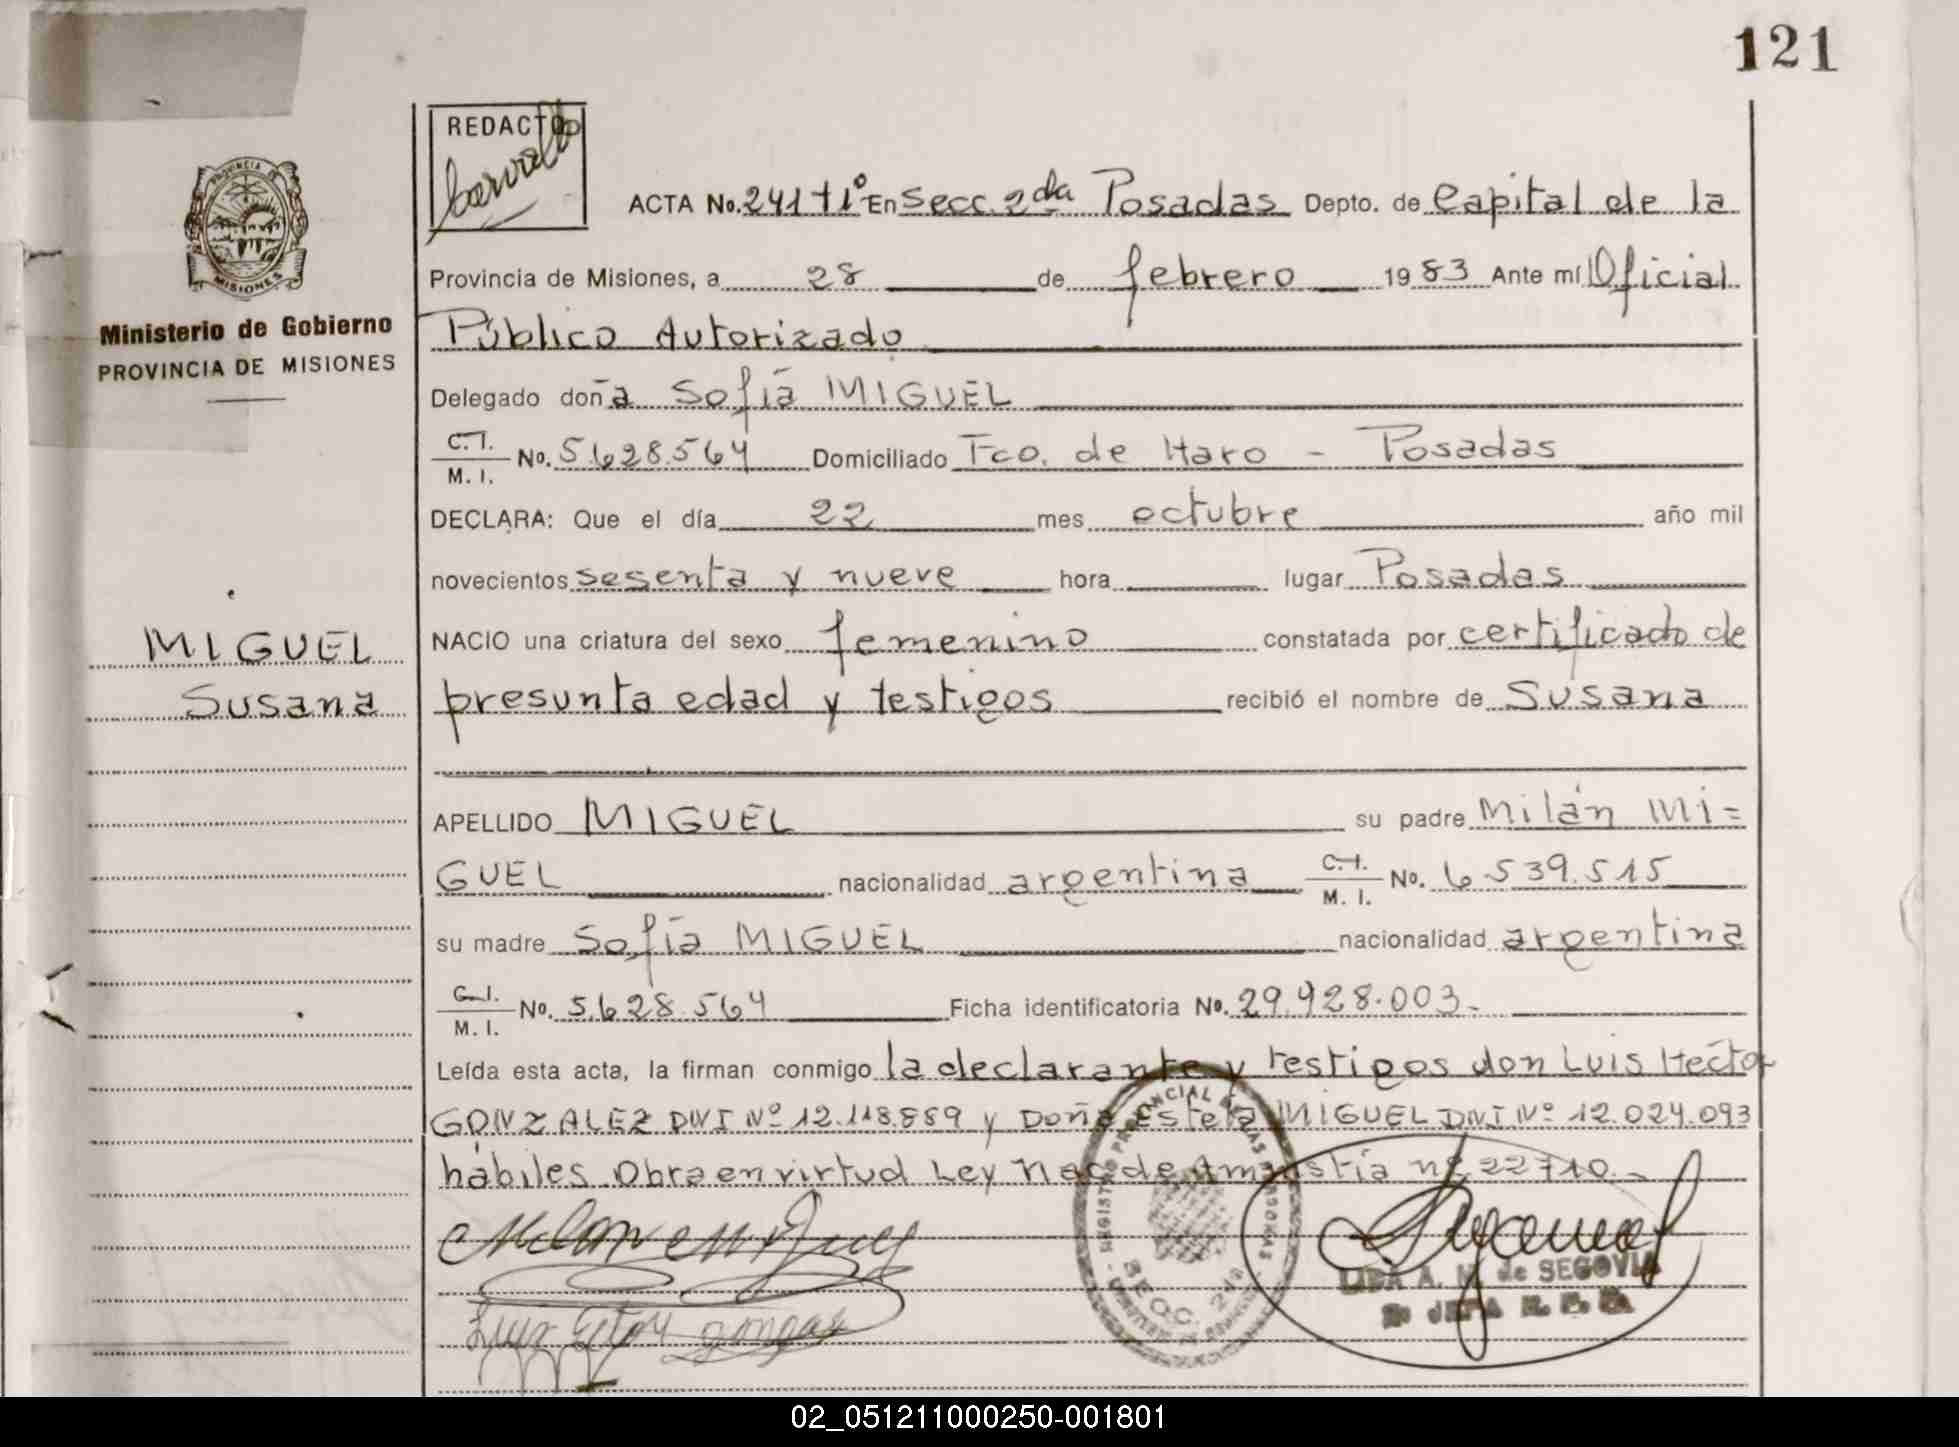 121
REDACTO
PROVINCIA DE
MISIONES
Ministerio de Gobierno
PROVINCIA DE MISIONES
MIGUEL
Susana
ACTA No. 241 tiº En Secc. 2da Posadas Depto. de Capital de la
Provincia de Misiones, a 28 de febrero 1983 Ante mí Oficial
Público Autorizado
Delegado doña Sofía MIGUEL
C.I. M. I. No. 5.628.564 Domiciliado Fco. de Haro - Posadas
DECLARA: Que el día 22 mes octubre año mil
novecientos sesenta y nueve hora lugar Posadas
NACIO una criatura del sexo femenino constatada por certificado de
presunta edad y testigos recibió el nombre de Susana
APELLIDO MIGUEL su padre Milán MI=
GUEL nacionalidad argentina C.I. M. I. No. 6.539.515
su madre Sofía MIGUEL nacionalidad argentina
C.I. M. I. No. 5.628.564 Ficha identificatoria No. 29.928.003.-
Leída esta acta, la firman conmigo la declarante y testigos don Luis Hector
GONZALEZ DNI Nº 12.118.889 y Doña Estela MIGUEL DNI Nº 12.024.093
hábiles. Obra en virtud Ley Nac de Amnistía nº 22710.-
REGISTRO PROVINCIAL DE LAS PERSONAS
SECC. 2da
LIDA A. M. de SEGOVIA
02_051211000250-001801